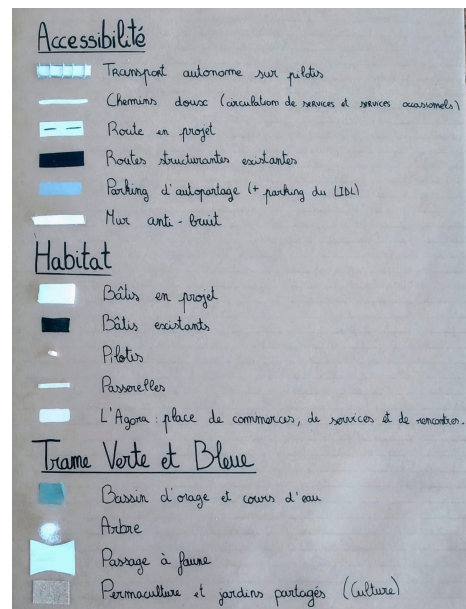 Accessibilité
Transport autonome sur pilotis
Chemins doux (circulation de services et services occasionnels)
Route en projet
Routes structurantes existantes
Parking d'autopartage (+ parking du LIDL)
Mur anti-bruit
Habitat
Bâtis en projet
Bâtis existants
Pilotis
Passerelles
L'Agora : place de commerces, de services et de rencontres.
Trame Verte et Bleue
Bassin d'orage et cours d'eau
Arbre
Passage à faune
Permaculture et jardins partagés (Culture)